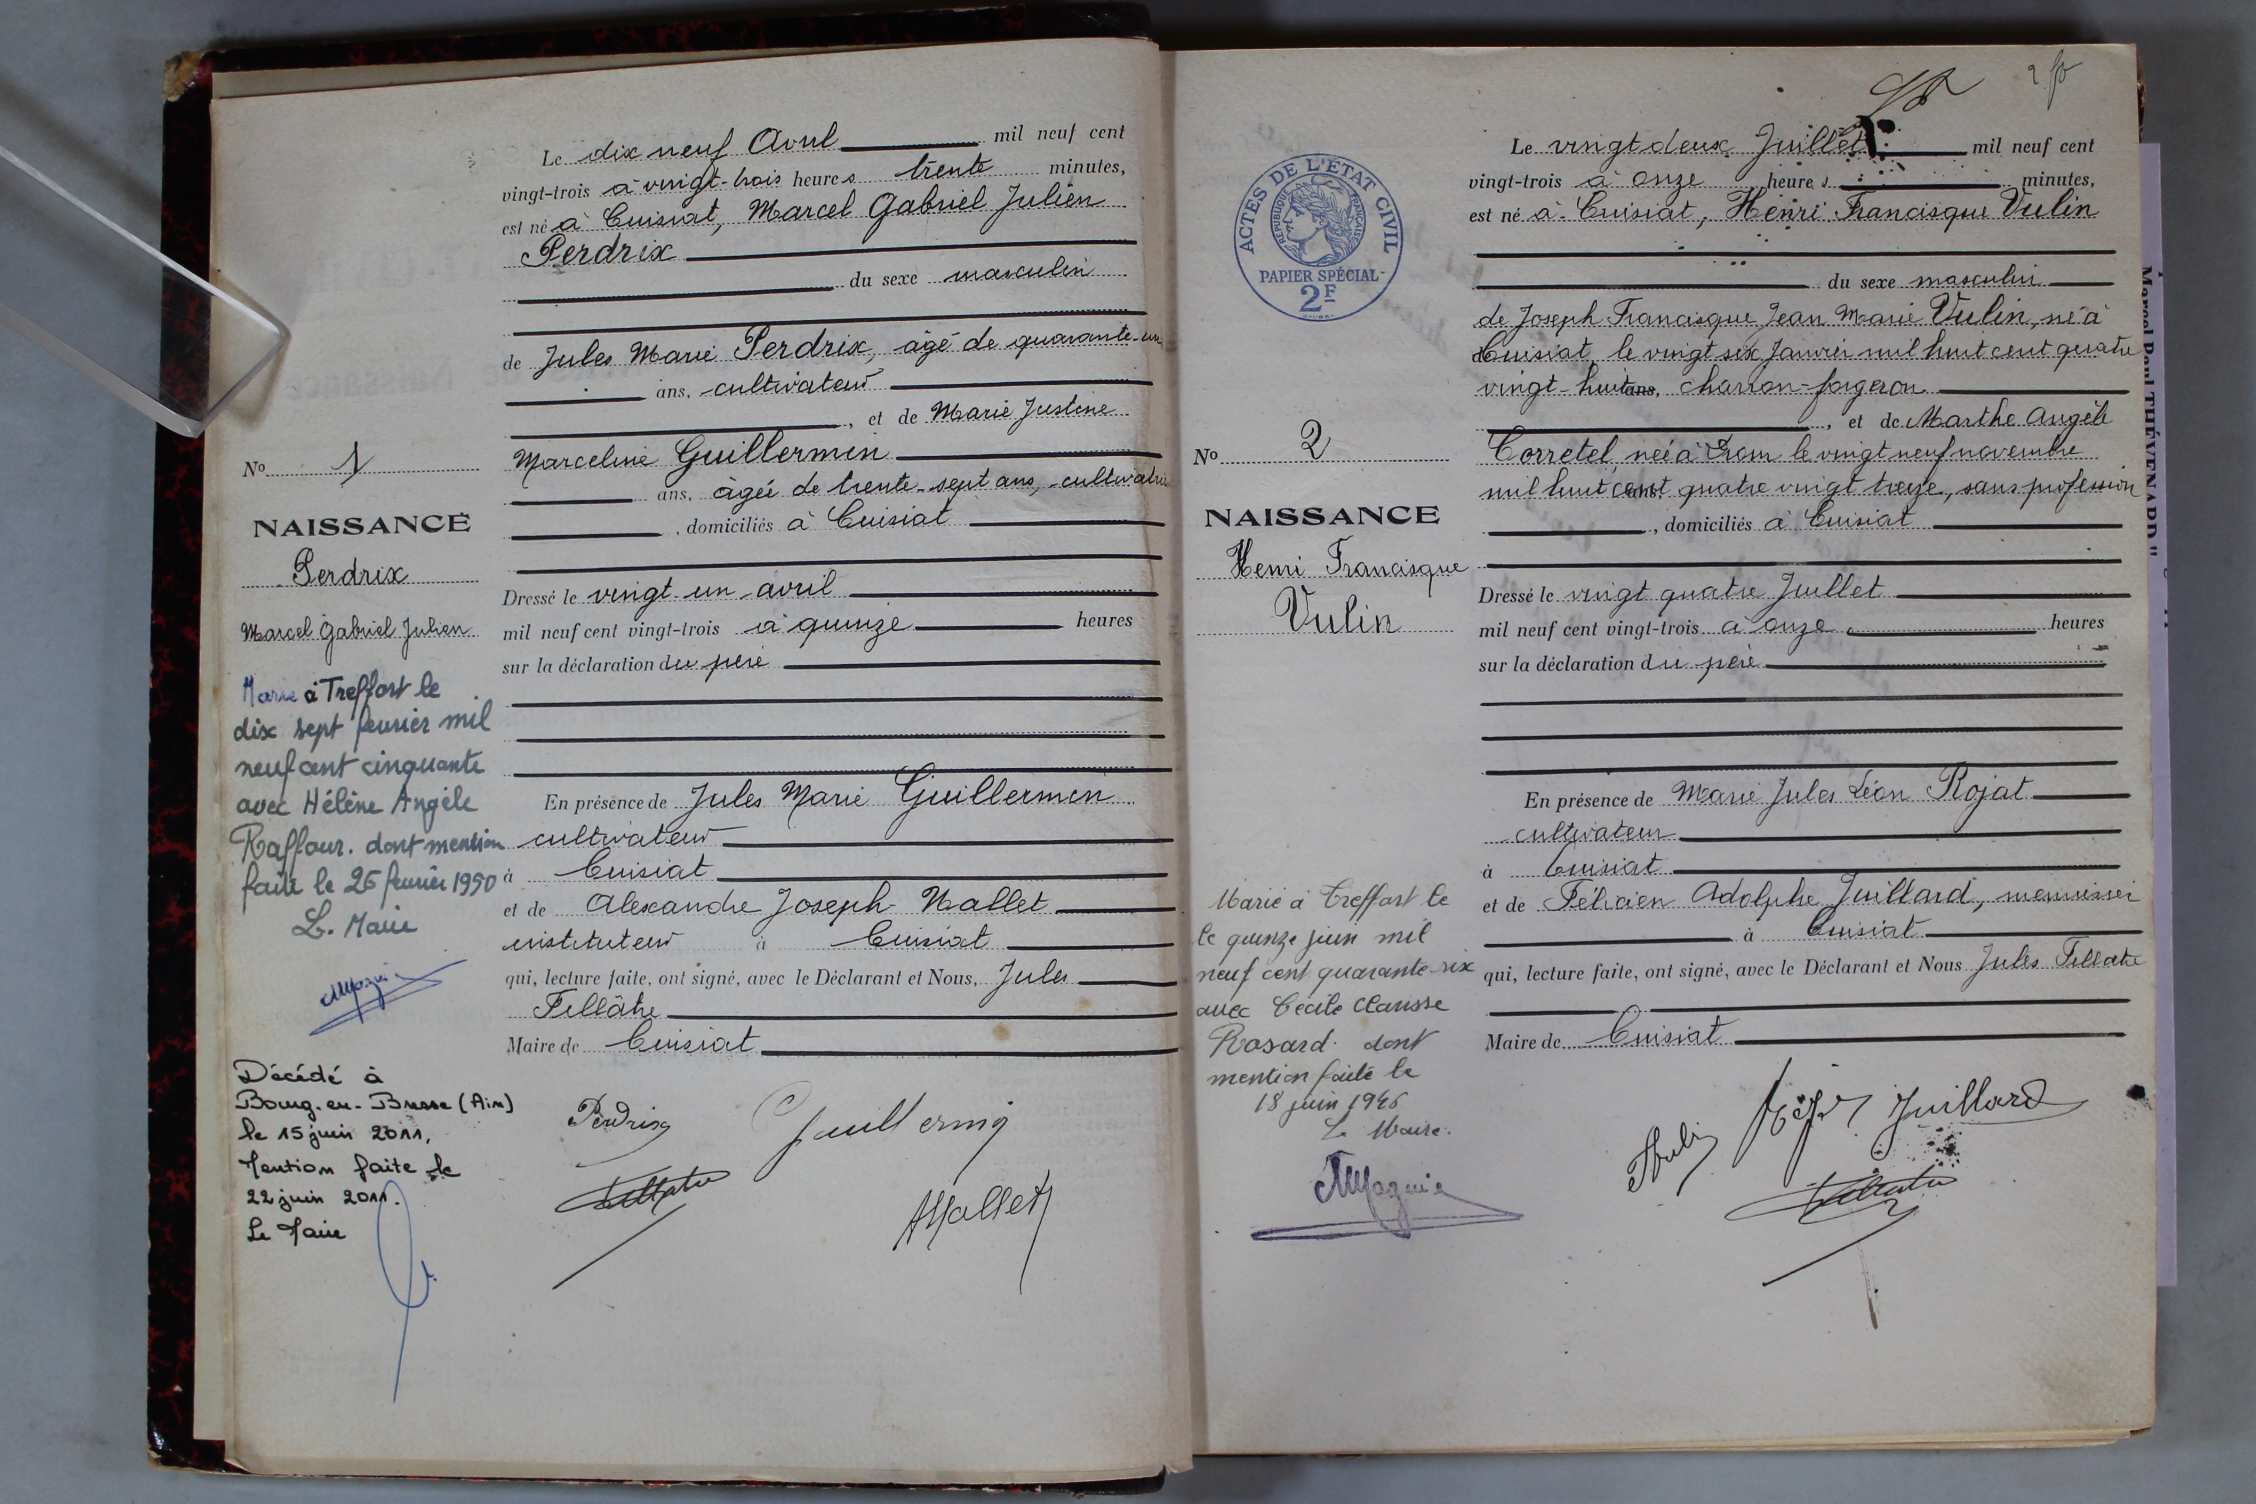 Le dix neuf Avril mil neuf cent
vingt-trois à vingt-trois heures trente minutes,
est né à Cuisiat, Marcel Gabriel Julien
Perdrix
du sexe masculin
de Jules Marie Perdrix, âgé de quarante-un
ans, cultivateur
, et de Marie Justine
Marceline Guillermin
ans, âgée de trente-sept ans, cultivatrice
, domiciliés à Cuisiat
Dressé le vingt-un avril
mil neuf cent vingt-trois à quinze heures
sur la déclaration du père
En présence de Jules Marie Guillermin
cultivateur
à Cuisiat
et de Alexandre Joseph Mallet
instituteur à Cuisiat
qui, lecture faite, ont signé, avec le Déclarant et Nous, Jules
Fillâtre
Maire de Cuisiat
Perdrix Guillermin
Fillatre AMallet
No 1
NAISSANCE
Perdrix
Marcel Gabriel Julien
Marié à Treffort le
dix sept fevrier mil
neuf cent cinquante
avec Hélène Angèle
Raffour. dont mention
faite le 25 fevrier 1950
L. Maire
Décédé à
Bourg-en-Bresse (Ain)
le 15 juin 2011.
Mention faite le
22 juin 2011.
Le Maire
2
Le vingt deux Juillet mil neuf cent
vingt-trois à onze heures minutes,
est né à Cuisiat, Henri Francisque Vulin
du sexe masculin
de Joseph Francisque Jean Marie Vulin, né à
Cuisiat, le vingt six Janvier mil huit cent quatre
vingt-huit ans, charron-forgeron
, et de Marthe Angèle
Corretel, née à Drom le vingt neuf novembre
mil huit cent quatre vingt treize, sans profession
, domiciliés à Cuisiat
Dressé le vingt quatre Juillet
mil neuf cent vingt-trois à onze heures
sur la déclaration du père
En présence de Marie Jules Léon Rojat
cultivateur
à Cuisiat
et de Félicien Adolphe Juillard, menuisier
à Cuisiat
qui, lecture faite, ont signé, avec le Déclarant et Nous Jules Fillatre
Maire de Cuisiat
Vulin Juillard
Fillatre
ACTES DE L'ÉTAT CIVIL
RÉPUBLIQUE FRANÇAISE
PAPIER SPÉCIAL
2F
No 2
NAISSANCE
Henri Francisque
Vulin
Marié à Treffort le
le quinze juin mil
neuf cent quarante-six
avec Cécile Clarisse
Rosard. dont
mention faite le
18 juin 1946
Le Maire.
Marcel Paul THÉVENARD"